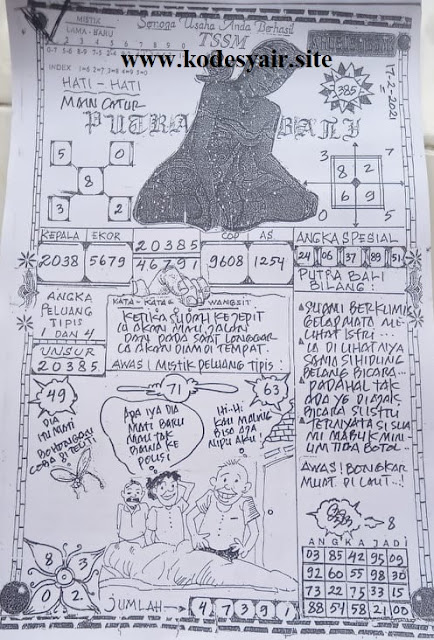 MISTIK
LAMA - BARU
Semoga Usaha Anda Berhasil
TSSM
www.kodesyair.site
HATI - HATI
MAIN CATUR
PUTRA BALI
385
17-2-2021
5 0
8
3 2
3 7
8 2
6 9
0 5
KEPALA EKOR 20385 COP AS ANGKA SPESIAL
2038 5679 46791 9608 1254 24 06 37 89 51
ANGKA
PELUANG
TIPIS
DAN 4
UNSUR
20385
KATA - KATA WANGSIT
KETIKA SUDAH KEJEPIT
IA AKAN MAU JALAN
DAN PADA SAAT LONGGAR
IA AKAN DIAM DI TEMPAT.
AWAS! MISTIK PELUANG TIPIS
PUTRA BALI
BILANG:
SUAMI BERKUMIS
GELAP MATA ME-
LIHAT ISTRI
IA DILIHATNYA
SAMA SI HIDUNG
BELANG BICARA...
PADAHAL TAK
ADA YG DIAJAK
BICARA SI ISTRI
TERNYATA SI SUA
MI MABUK MIN
UM TIGA BOTOL...
AWAS! BONGKAR
MUAT DI LAUT...!
49
71
63
DIA
INI MATI
BOHONGAN
COBA DITELITI
ADA IYA DIA
MATI BARU
MAU TAK
BAWA KE
POLISI
HI..HI
KAU MALING
BISA AJA
NIPU AKU!
8
8 3
0 2
JUMLAH 4 7 3 9 1
ANGKA JADI
03 85 42 95 09
92 60 55 98 30
73 22 75 33 15
88 54 58 21 00